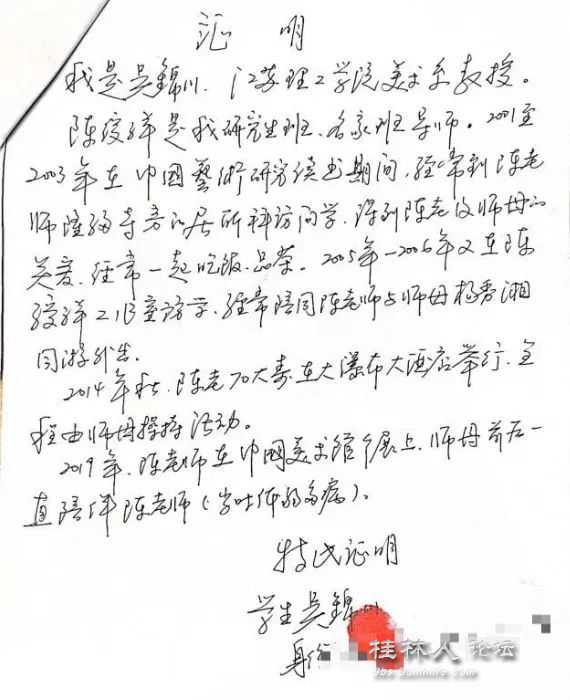 证 明
我是吴錦川、江苏理工学院美术系教授。
陈绶祥是我研究生班、名家班导师。2001至
2003年在中國藝術研究读书期间,经常到陈老
师隆福寺旁的居所拜访问学,得到陈老及师母的
关爱、经常一起吃饭、品茶。2005年-2006年又在陈
绶祥工作室访学、经常陪同陈老师与师母杨秀湘
同游外出。
2014年秋、陈老70大寿在大瀑布大酒店举行、全
程由师母操持活动。
2019年、陈老师在中國美术馆个展上、师母前后一
直陪伴陈老师(当时体弱多病)。
特此证明
学生吴錦川
身份
桂林人论坛
bbs.guilinlife.com